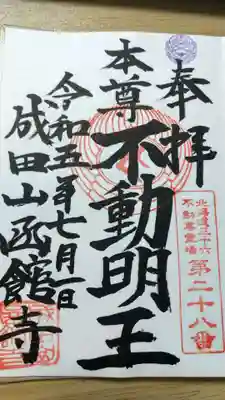 奉拝
北海道三十六
不動尊霊場
第二十八番
本尊
不動明王
令和五年七月一日
成田山函館寺